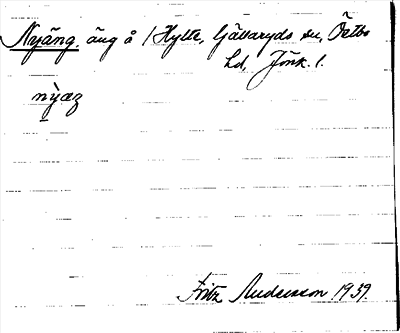 Nyäng, äng å 1 Hylte, Gällaryds sn, Östbo
hd, Jönk. l.
nỳæŋ
Fritz Andersson 1939.